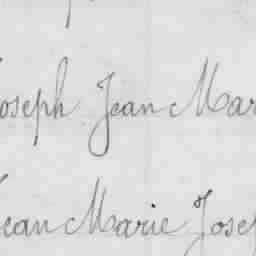 oseph Jean Mar
Jean Marie Josep